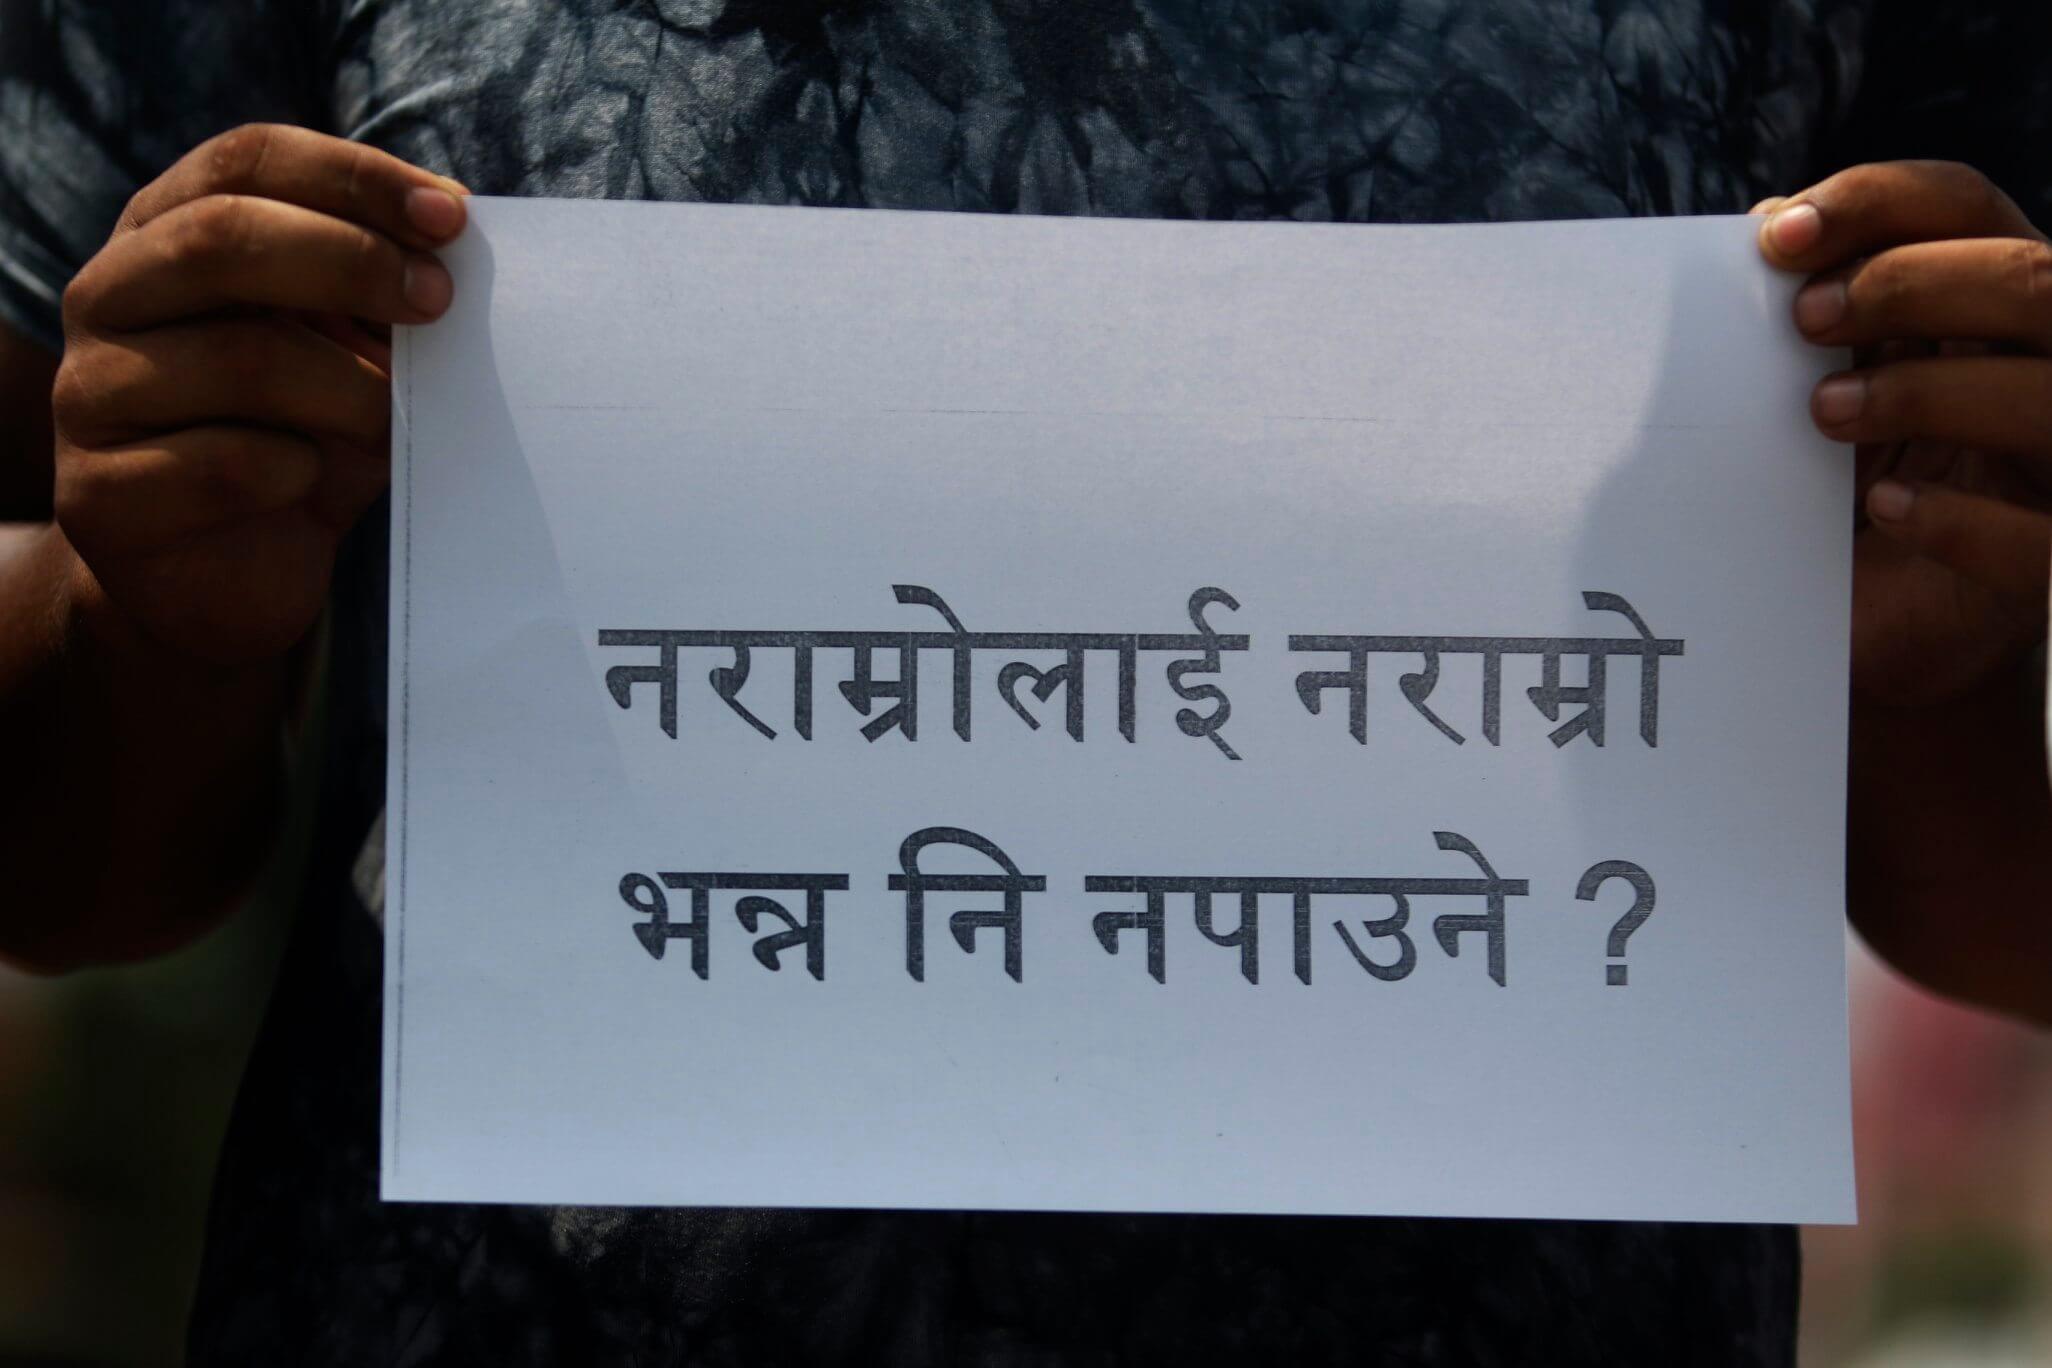 नराम्रोलाई नराम्रो
भन्न नि नपाउने ?